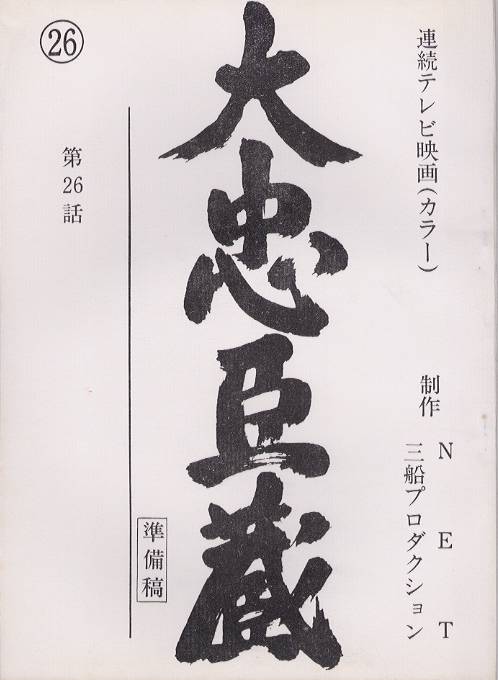 連続テレビ映画(カラー)
制作
NET
三船プロダクション
大忠臣蔵
準備稿
第26話
26